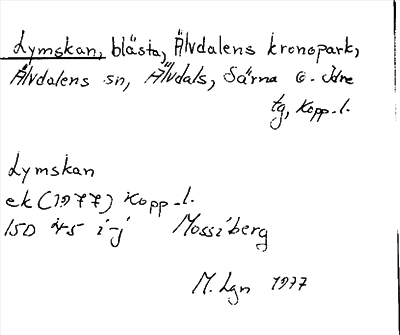 Lymskan, blåsta, Älvdalens kronopark,
Älvdalens sn, Älvdals, Särna o. Idre
tg, Kopp. l.
Lymskan
ek (1977) Kopp. l.
15D 4-5 i-j Mossiberg
M. Lgn 1977